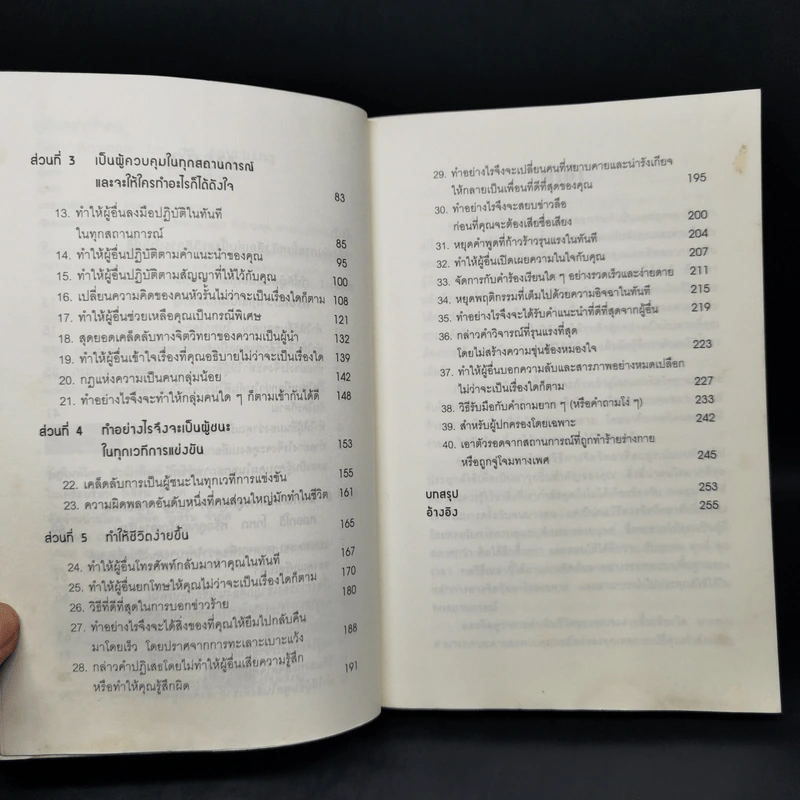 ส่วนที่ 3 เป็นผู้ควบคุมในทุกสถานการณ์
และจะให้ใครทำอะไรก็ได้ดังใจ 83
13. ทำให้ผู้อื่นลงมือปฏิบัติในทันที
ในทุกสถานการณ์ 85
14. ทำให้ผู้อื่นปฏิบัติตามคำแนะนำของคุณ 95
15. ทำให้ผู้อื่นปฏิบัติตามสัญญาที่ให้ไว้กับคุณ 100
16. เปลี่ยนความคิดของคนหัวรั้นไม่ว่าจะเป็นเรื่องใดก็ตาม 108
17. ทำให้ผู้อื่นช่วยเหลือคุณเป็นกรณีพิเศษ 121
18. สุดยอดเคล็ดลับทางจิตวิทยาของความเป็นผู้นำ 132
19. ทำให้ผู้อื่นเข้าใจเรื่องที่คุณอธิบายไม่ว่าจะเป็นเรื่องใด 139
20. กฎแห่งความเป็นคนกลุ่มน้อย 142
21. ทำอย่างไรจึงจะทำให้กลุ่มคนใด ๆ ก็ตามเข้ากันได้ดี 148
ส่วนที่ 4 ทำอย่างไรจึงจะเป็นผู้ชนะ
ในทุกเวทีการแข่งขัน 153
22. เคล็ดลับการเป็นผู้ชนะในทุกเวทีการแข่งขัน 155
23. ความผิดพลาดอันดับหนึ่งที่คนส่วนใหญ่มักทำในชีวิต 161
ส่วนที่ 5 ทำให้ชีวิตง่ายขึ้น 165
24. ทำให้ผู้อื่นโทรศัพท์กลับมาหาคุณในทันที 167
25. ทำให้ผู้อื่นยกโทษให้คุณไม่ว่าจะเป็นเรื่องใดก็ตาม 170
26. วิธีที่ดีที่สุดในการบอกข่าวร้าย 180
27. ทำอย่างไรจึงจะได้สิ่งของที่คุณให้ยืมไปกลับคืน
มาโดยเร็ว โดยปราศจากการทะเลาะเบาะแว้ง 188
28. กล่าวคำปฏิเสธโดยไม่ทำให้ผู้อื่นเสียความรู้สึก
หรือทำให้คุณรู้สึกผิด 191
29. ทำอย่างไรจึงจะเปลี่ยนคนที่หยาบคายและน่ารังเกียจ
ให้กลายเป็นเพื่อนที่ดีที่สุดของคุณ 195
30. ทำอย่างไรจึงจะสยบข่าวลือ
ก่อนที่คุณจะต้องเสียชื่อเสียง 200
31. หยุดคำพูดที่ก้าวร้าวรุนแรงในทันที 204
32. ทำให้ผู้อื่นเปิดเผยความในใจกับคุณ 207
33. จัดการกับคำร้องเรียนใด ๆ อย่างรวดเร็วและง่ายดาย 211
34. หยุดพฤติกรรมที่เต็มไปด้วยความอิจฉาในทันที 215
35. ทำอย่างไรจึงจะได้รับคำแนะนำที่ดีที่สุดจากผู้อื่น 219
36. กล่าวคำวิจารณ์ที่รุนแรงที่สุด
โดยไม่สร้างความขุ่นข้องหมองใจ 223
37. ทำให้ผู้อื่นบอกความลับและสารภาพอย่างหมดเปลือก
ไม่ว่าจะเป็นเรื่องใดก็ตาม 227
38. วิธีรับมือกับคำถามยาก ๆ (หรือคำถามโง่ ๆ) 233
39. สำหรับผู้ปกครองโดยเฉพาะ 242
40. เอาตัวรอดจากสถานการณ์ที่ถูกทำร้ายร่างกาย
หรือถูกจู่โจมทางเพศ 245
บทสรุป 253
อ้างอิง 255